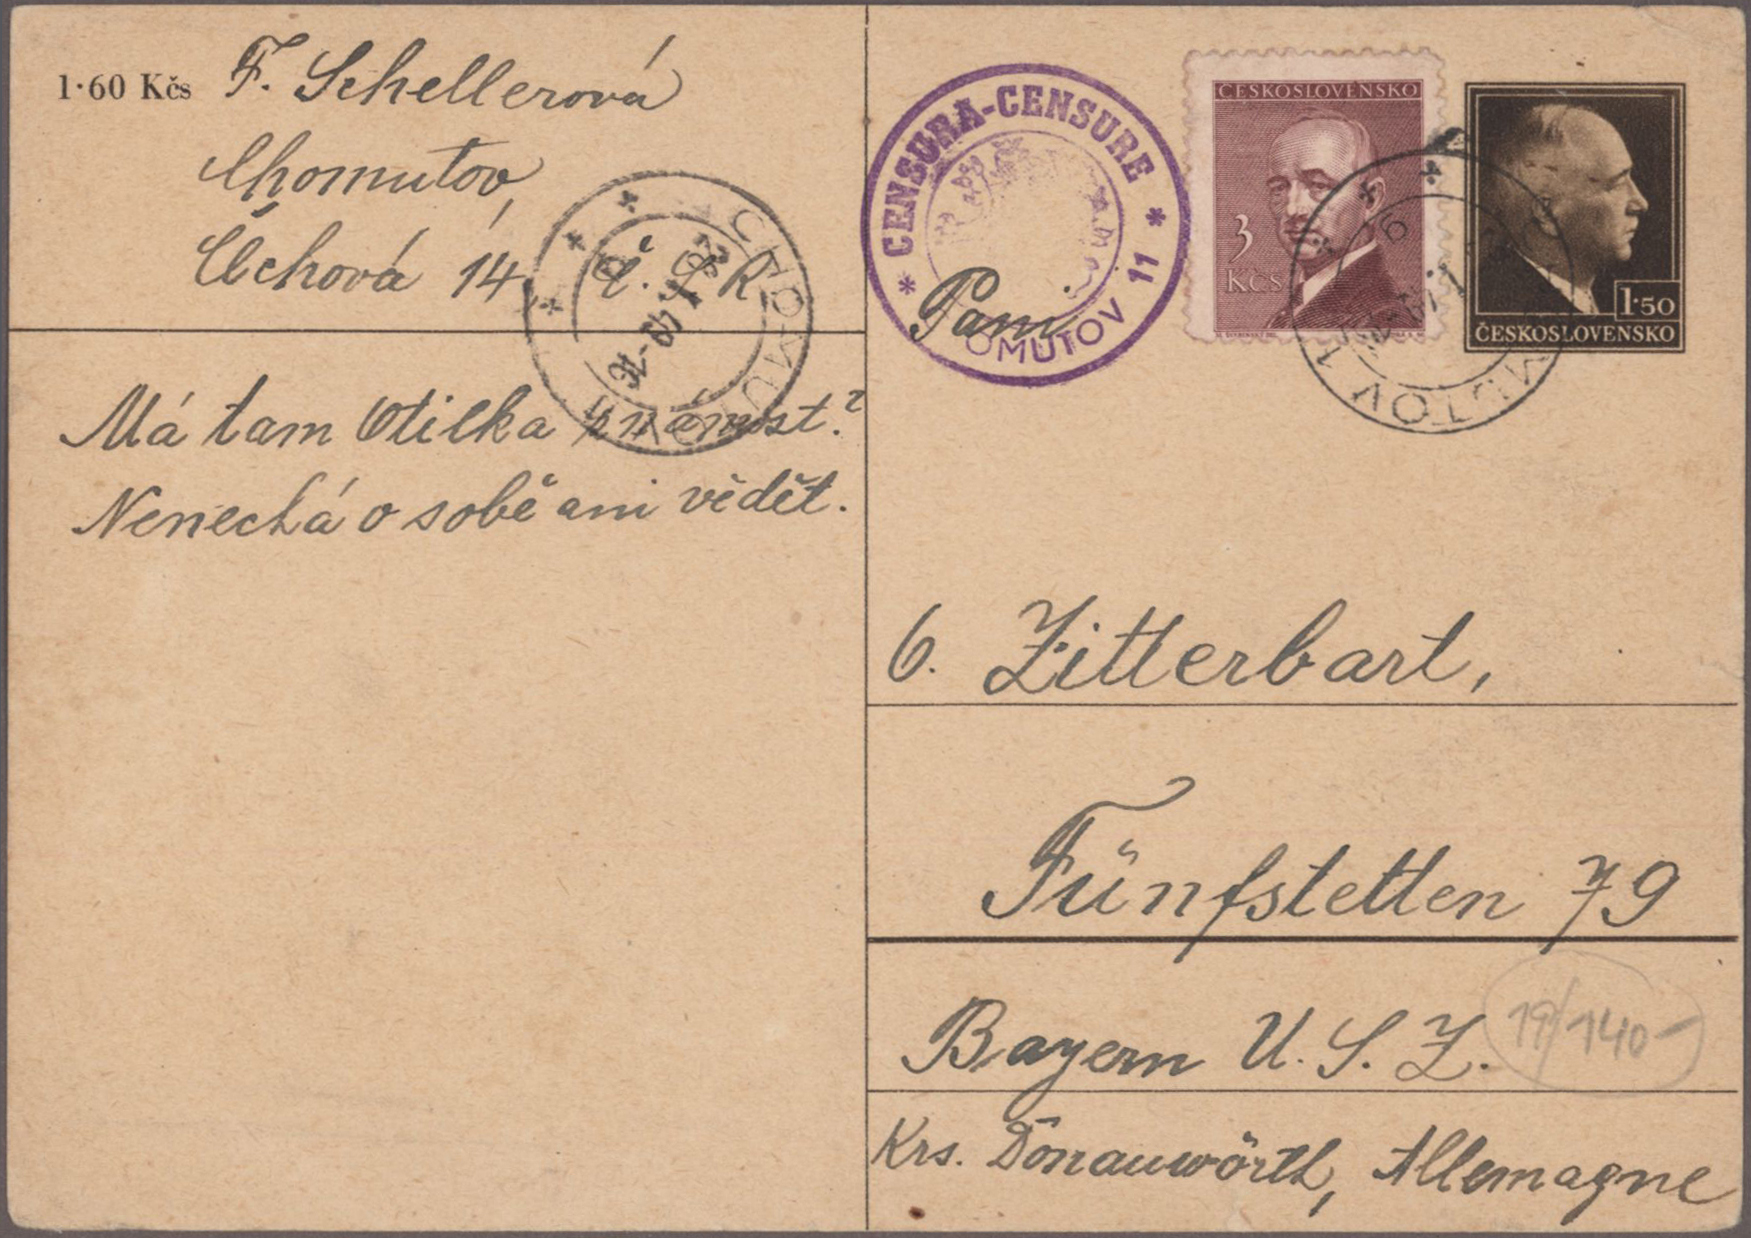 1·60 Kčs F. Schellerová
Chomutov,
Čechová 14, Č.S.R.
Má tam Otilka známost?
Nenechá o sobě ani vědět.
* CENSURA-CENSURE *
OMUTOV 11
ČESKOSLOVENSKO
3
KČS
1·50
ČESKOSLOVENSKO
CHOMUTOV
MUTOV 1
Paní
G. Zitterbart,
Fünfstetten 79
Bayern U.S.Z.
19/140-
Krs. Donauwörth, Allemagne